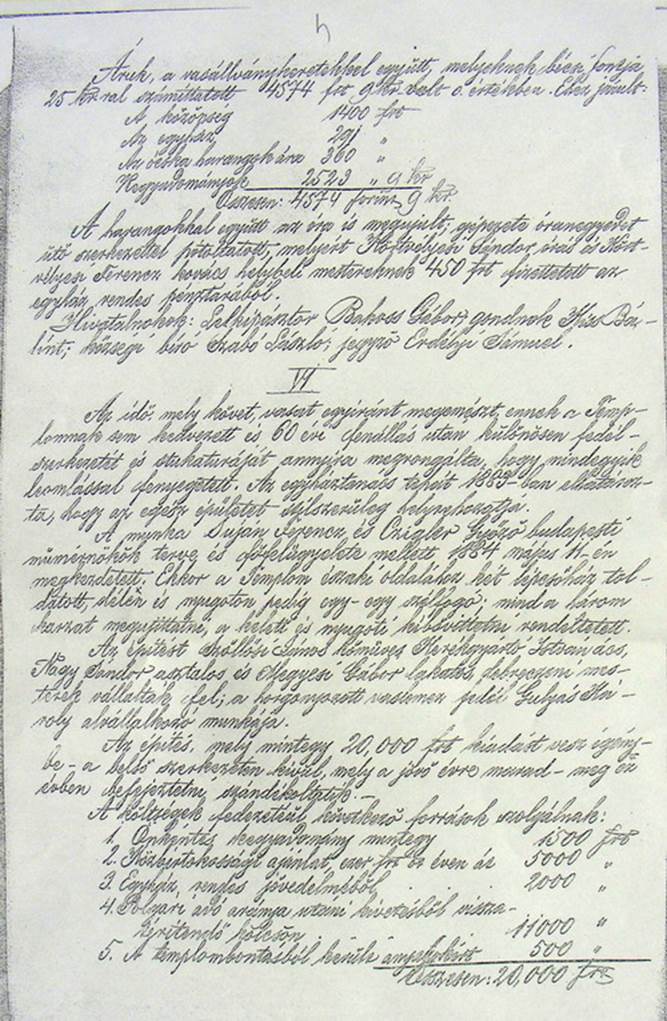 Áruk, a vasállványkeretekkel együtt, melyeknek bécsi fontja
25 kr.ral számíttatott 4574 frt 9 kr. volt o. értékben. Ehez járult:
A község 1400 frt
Az egyház 291 "
Az ócska harangok ára 360 "
Kegyadományok 2523 " 9 kr
Összesen: 4574 forint 9 kr.
A harangokkal együtt az óra is megujult; gépezete óranegyedet
ütő szerkezettel pótoltatott, melyért Sándor órás és
Ferencz kovács helybeli mestereknek 450 frt fizettetett az
egyház rendes pénztárából.
Hivatalnokok: Lelkipásztor Bakoss Gábor, gondnok Kiss Bá-
lint; községi biró Szabó László; jegyző Erdélyi Sámuel.
VI
Az idő, mely követ, vasat egyiránt megemészt, ennek a Temp-
lomnak sem kedvezett és 60 évi fenállás után különösen fedél-
szerkezetét és stukaturáját annyira megrongálta, hogy mindegyik
leomlással fenyegetett. Az egyháztanács tehát 1883-ban elhatároz-
ta, hogy az egész épületet czélszerüleg helyrehozatja.
A munka Suján Ferencz és Czigler Győző budapesti
műmérnökök terve és főfelügyelete mellett 1884 május -én
megkezdetett. Ekkor a Templom északi oldalához két lépcsőház tol-
datott, délén és nyugoton pedig egy-egy szélfogó; mind a három
karzat megujittatni, a keleti és nyugoti kibővittetni rendeltetett.
Az épitést Szőllősi János kőmüves, Kerékgyártó István ács,
Nagy Sándor asztalos és Megyesi Gábor lakatos, debreczeni mes-
terek vállalták fel; a horgonyozott vaslemez fedél Gulyás Ká-
roly alvállalkozó munkája.
Az épités, mely mintegy 20,000 frt kiadást vesz igény-
be - a belső szerkezeten kivül, mely a jövő évre marad - még ez
évben befejeztetni szándékoltatik. -
A költségek fedezetéül következő források szolgálnak:
1. Önkéntes kegyadomány mintegy 1500 frt
2. Közbirtokossági ajánlat, ezer frt öt éven át 5000 "
3. Egyház, rendes jövedelméből 2000 "
4. Polgári adó aránya utáni kivetésből vissza-
téritendő kölcsön 11000 "
5. A templombontásból került anyagokért 500 "
Összesen: 20,000 frt